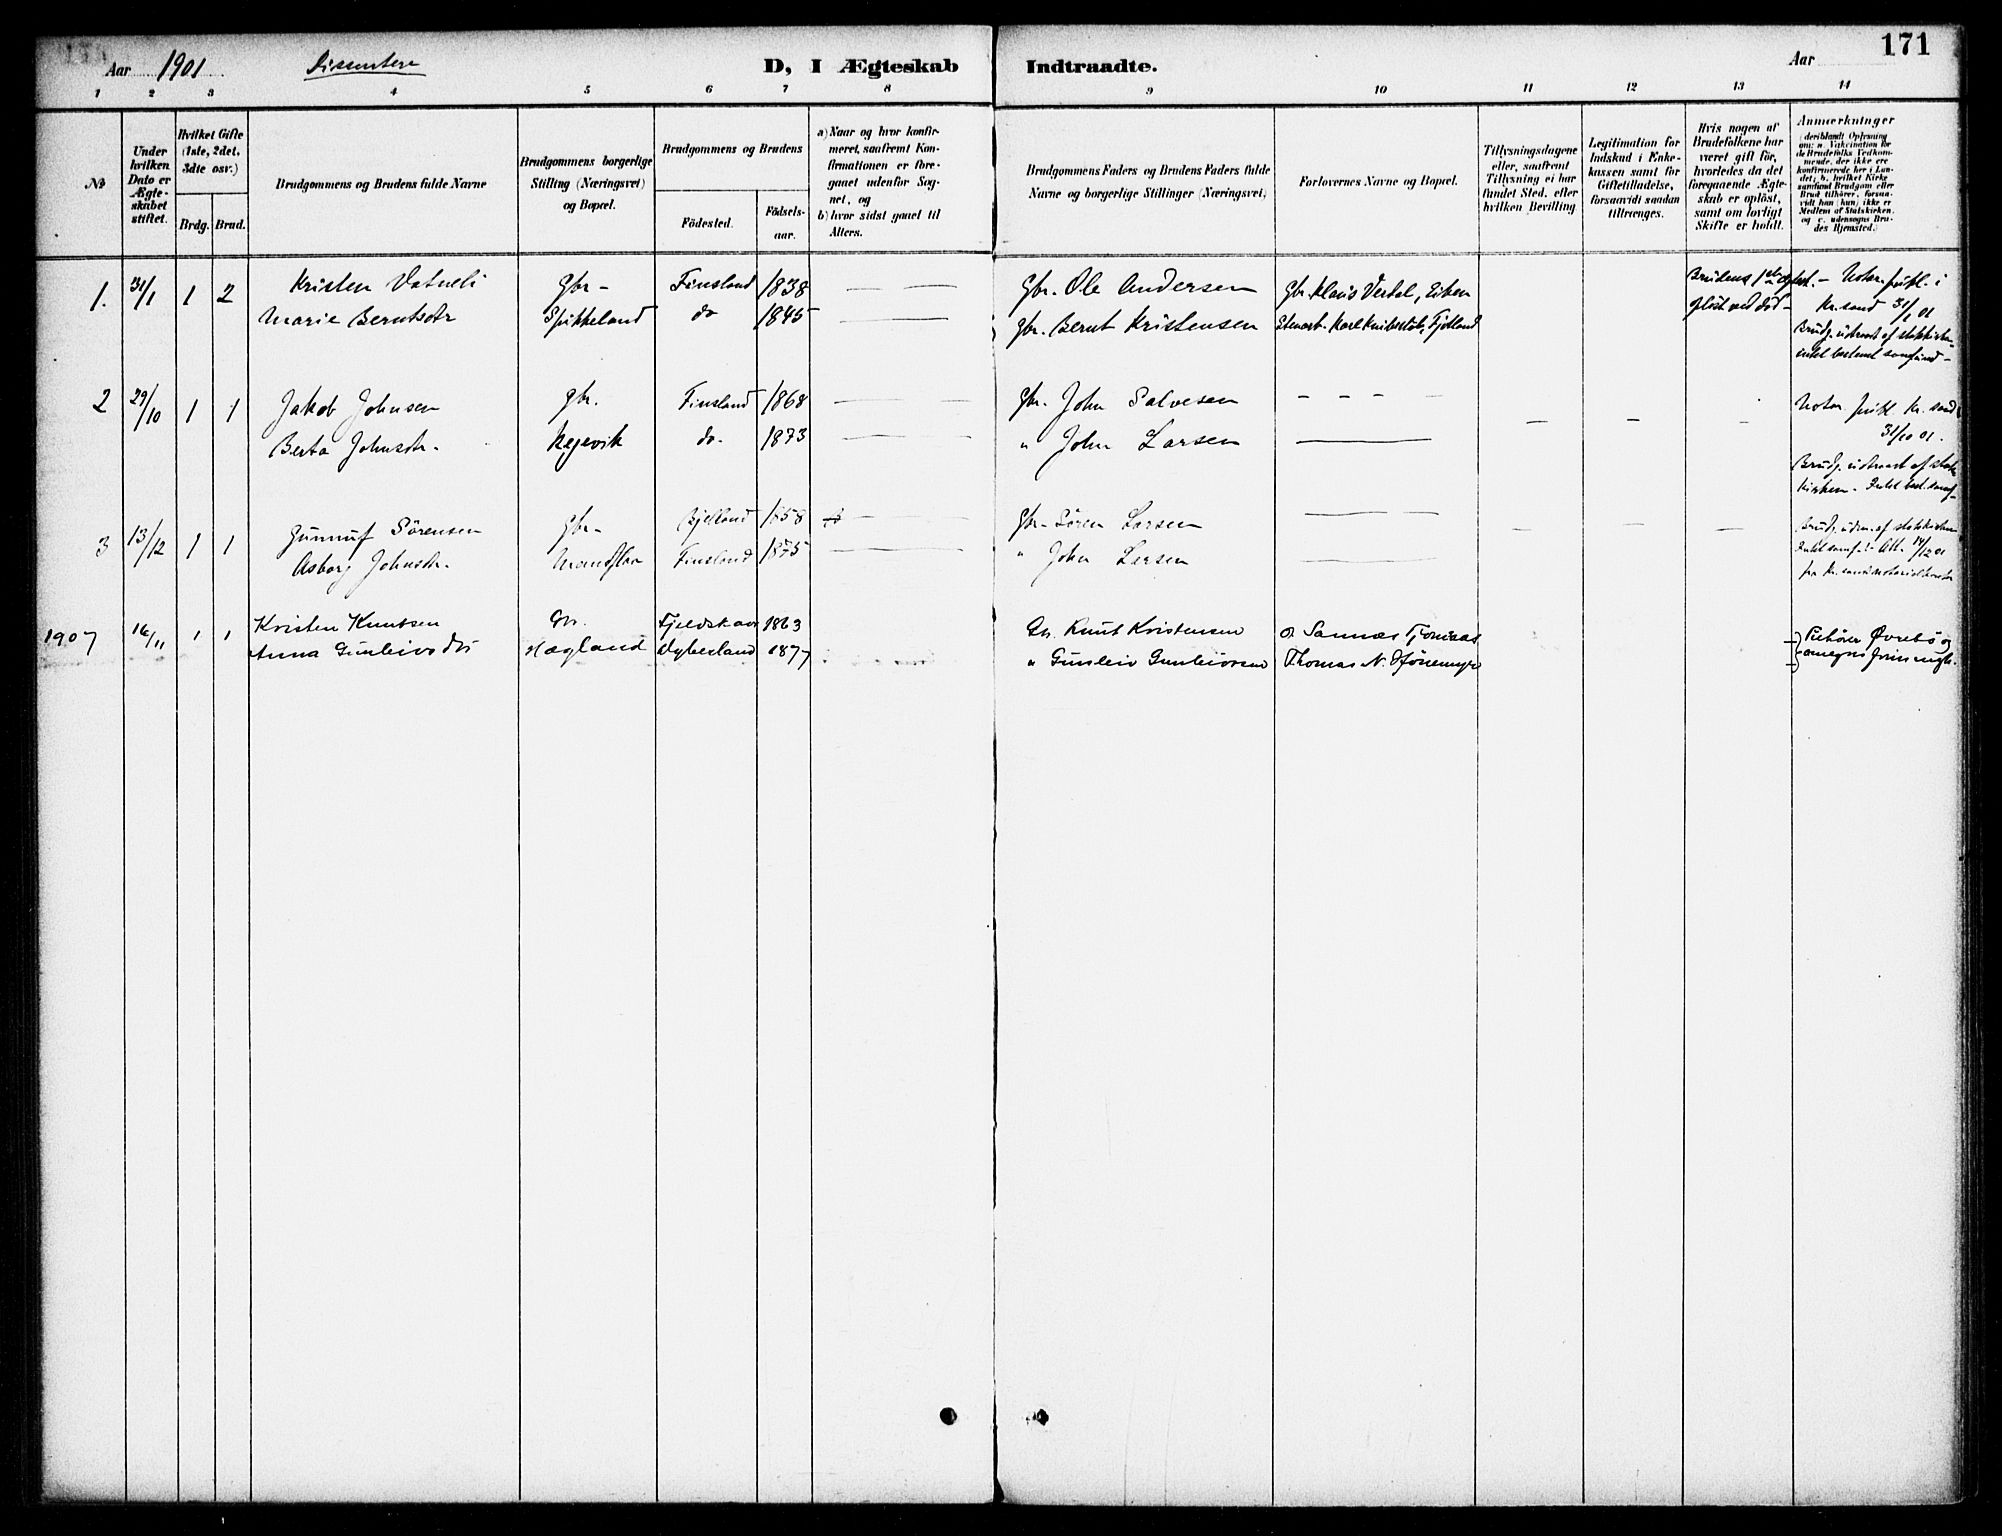 171
Aar 1901 Dissentere D, I Ægteskab Indtraadte. Aar
1 2 3 4 5 6 7 8 9 10 11 12 13 14
№
Under hvilken Dato er Ægteskabet stiftet.
Hvilket Gifte (1ste, 2det, 3dte osv.)
Brdg. Brud.
Brudgommens og Brudens fulde Navne
Brudgommens borgerlige Stilling (Næringsvei) og Bopæl.
Brudgommens og Brudens
Födested. Födsels-aar.
a) Naar og hvor konfir-
meret, saafremt Kon-
firmationen er fore-
gaaet udenfor Sog-
net, og
b) hvor sidst gaaet til
Alters.
Brudgommens Faders og Brudens Faders fulde
Navne og borgerlige Stillinger (Næringsvei)
Forlovernes Navne og Bopæl.
Tillysningsdagene
eller, saafremt
Tillysning ei har
fundet Sted, efter
hvilken Bevilling
Legitimation for
Indskud i Enke-
kassen samt for
Giftetilladelse,
forsaavidt saadan
tiltrænges.
Hvis nogen af
Brudefolkene har
været gift før,
hvorledes da det
foregaaende Ægte-
skab er oplöst,
samt om lovligt
Skifte er holdt.
Anmærkninger
1. 31/1 1 2 Kristen Vatneli Gbr - Finsland 1838 Gbr. Ole Andersen Gbr. Klaus Verdal, Eiken
Marie Berntsdtr Spikkeland do 1845 Gbr. Bernt Kristensen Karl Knibestøl, Fjotland
Brudens 1ste
ved död -
Notar. publ. i
Kr.sand 31/1 01
Brudg. udtraadt af statskirken
intet bestemt samfund -
2 29/10 1 1 Jakob Johnsen Gbr. Finsland 1868 Gbr. John Salvesen
Berta Johnsdtr. Kejevik do. 1873 " John Larsen
Notar. publ. Kr.sand
31/10 01.
Brudg. udtraadt af stats
kirken - Intet best. samf-
3 13/12 1 1 Gunnuf Sörensen Gbr- Bjelland 1858 Gbr - Sören Larsen
Asborg Johnsdtr. Finsland 1875 " John Larsen
Brudg. af statskirken
Intet samf. - Att. 14/12 01
fra Kr.sand
1907 16/11 1 1 Kristen Knutsen Gbr. 1863 Gbr. Knut Kristensen
Anna Gunleivsdtr Hægland 1877 " Gunleiv Gunleivsen Thomas N.
Øvrebø og
omegns frimenigh.